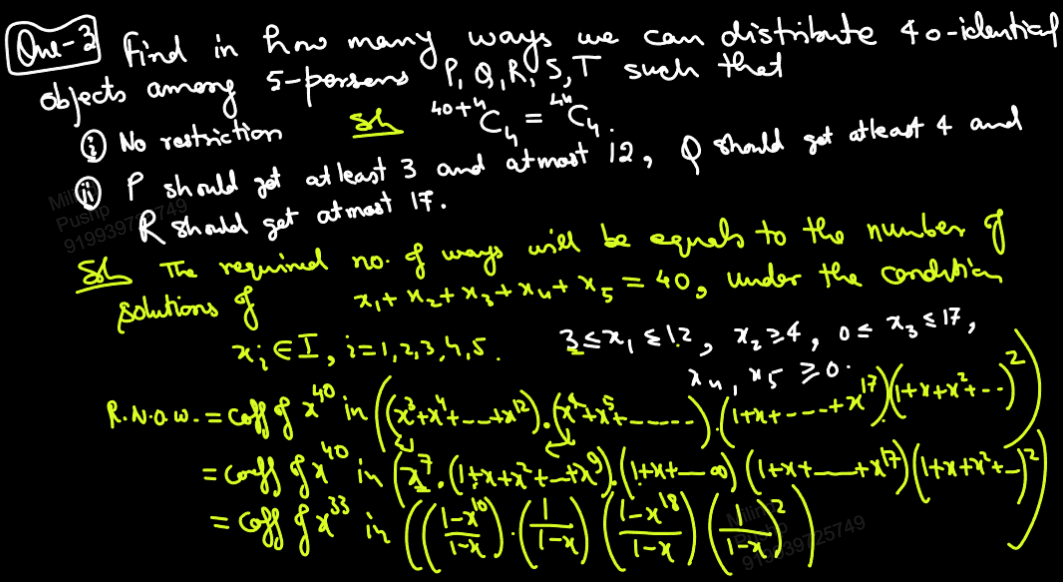 Que-3 Find in how many ways we can distribute 40-identical
objects among 5-persons P, Q, R, S, T such that
(i) No restriction Sol ⁴⁰⁺⁴C₄ = ⁴⁴C₄.
(ii) P should get at least 3 and atmost 12, Q should get atleast 4 and
R should get atmost 17.
Sol The required no. of ways will be equals to the number of
solutions of x₁+x₂+x₃+x₄+x₅ = 40, under the condition
xᵢ∈I, i=1,2,3,4,5. 3≤x₁≤12, x₂≥4, 0≤x₃≤17,
x₄, x₅ ≥0.
R.N.O.W. = coff of x⁴⁰ in ((x³+x⁴+---+x¹²).(x⁴+x⁵+-----).(1+x+----+x¹⁷)(1+x+x²+---)²)
= coeff of x⁴⁰ in (x⁷.(1+x+x²+--+x⁹).(1+x+--∞)(1+x+---+x¹⁷)(1+x+x²+--)²)
= coff of x³³ in (((1-x¹⁰)/(1-x)).(1/(1-x))((1-x¹⁸)/(1-x))(1/(1-x))²)
Pushp